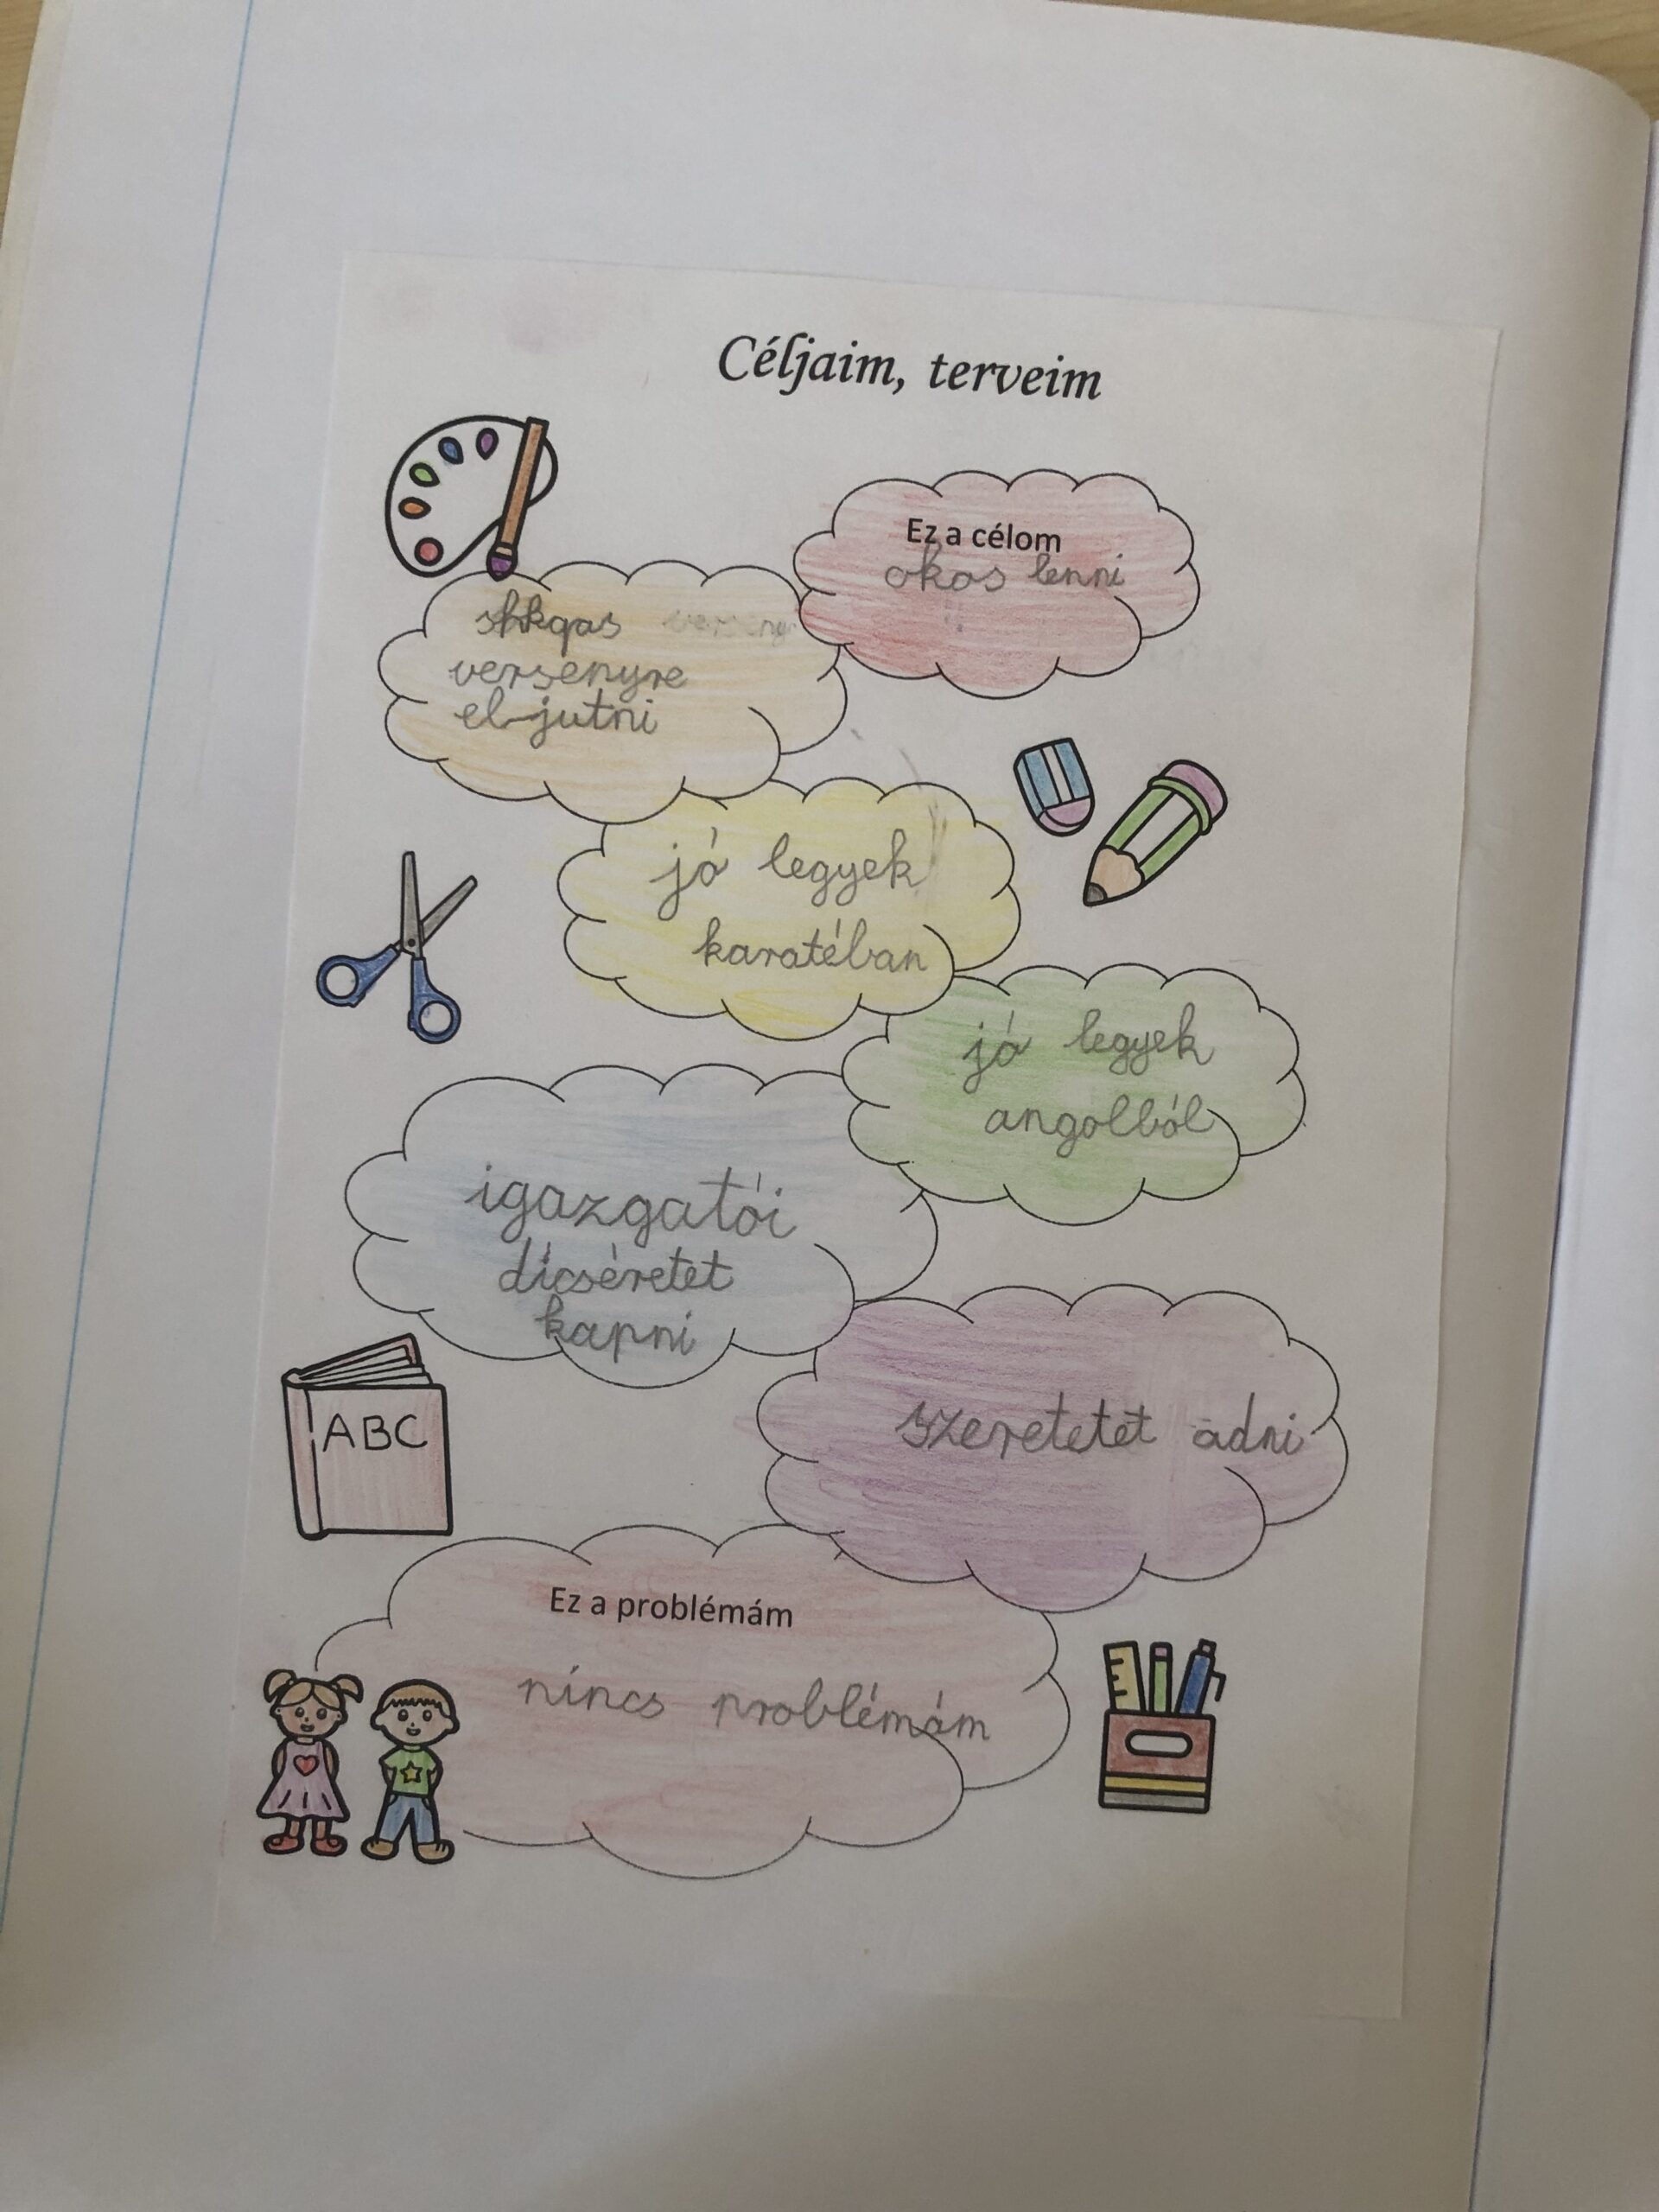 Céljaim, terveim
Ez a célom
okos lenni
versenyre
el-jutni
jó legyek
karatéban
jó legyek
angolból
igazgatói
dícséretet
kapni
ABC
szeretetet adni
Ez a problémám
níncs problémám